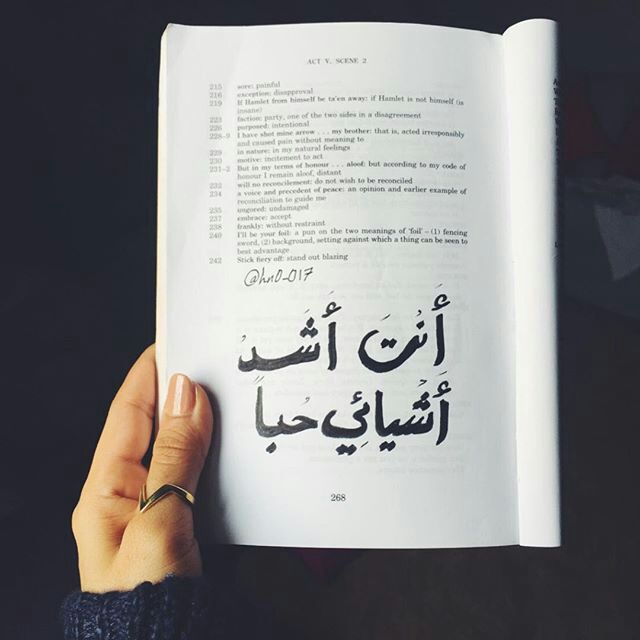 ACT V, SCENE 2
215 sore: painful
216 exception: disapproval
219 If Hamlet from himself be ta'en away: if Hamlet is not himself (is
insane)
223 faction: party, one of the two sides in a disagreement
226 purposed: intentional
228–9 I have shot mine arrow . . . my brother: that is, acted irresponsibly
and caused pain without meaning to
229 in nature: in my natural feelings
230 motive: incitement to act
231–2 But in my terms of honour . . . aloof: but according to my code of
honour I remain aloof, distant
232 will no reconcilement: do not wish to be reconciled
234 a voice and precedent of peace: an opinion and earlier example of
reconciliation to guide me
235 ungored: undamaged
237 embrace: accept
238 frankly: without restraint
240 I'll be your foil: a pun on the two meanings of 'foil' – (1) fencing
sword, (2) background, setting against which a thing can be seen to
best advantage
242 Stick fiery off: stand out blazing
@hn0_017
أَنْتَ أَشَدُ
أَشْيائِي حُباً
268